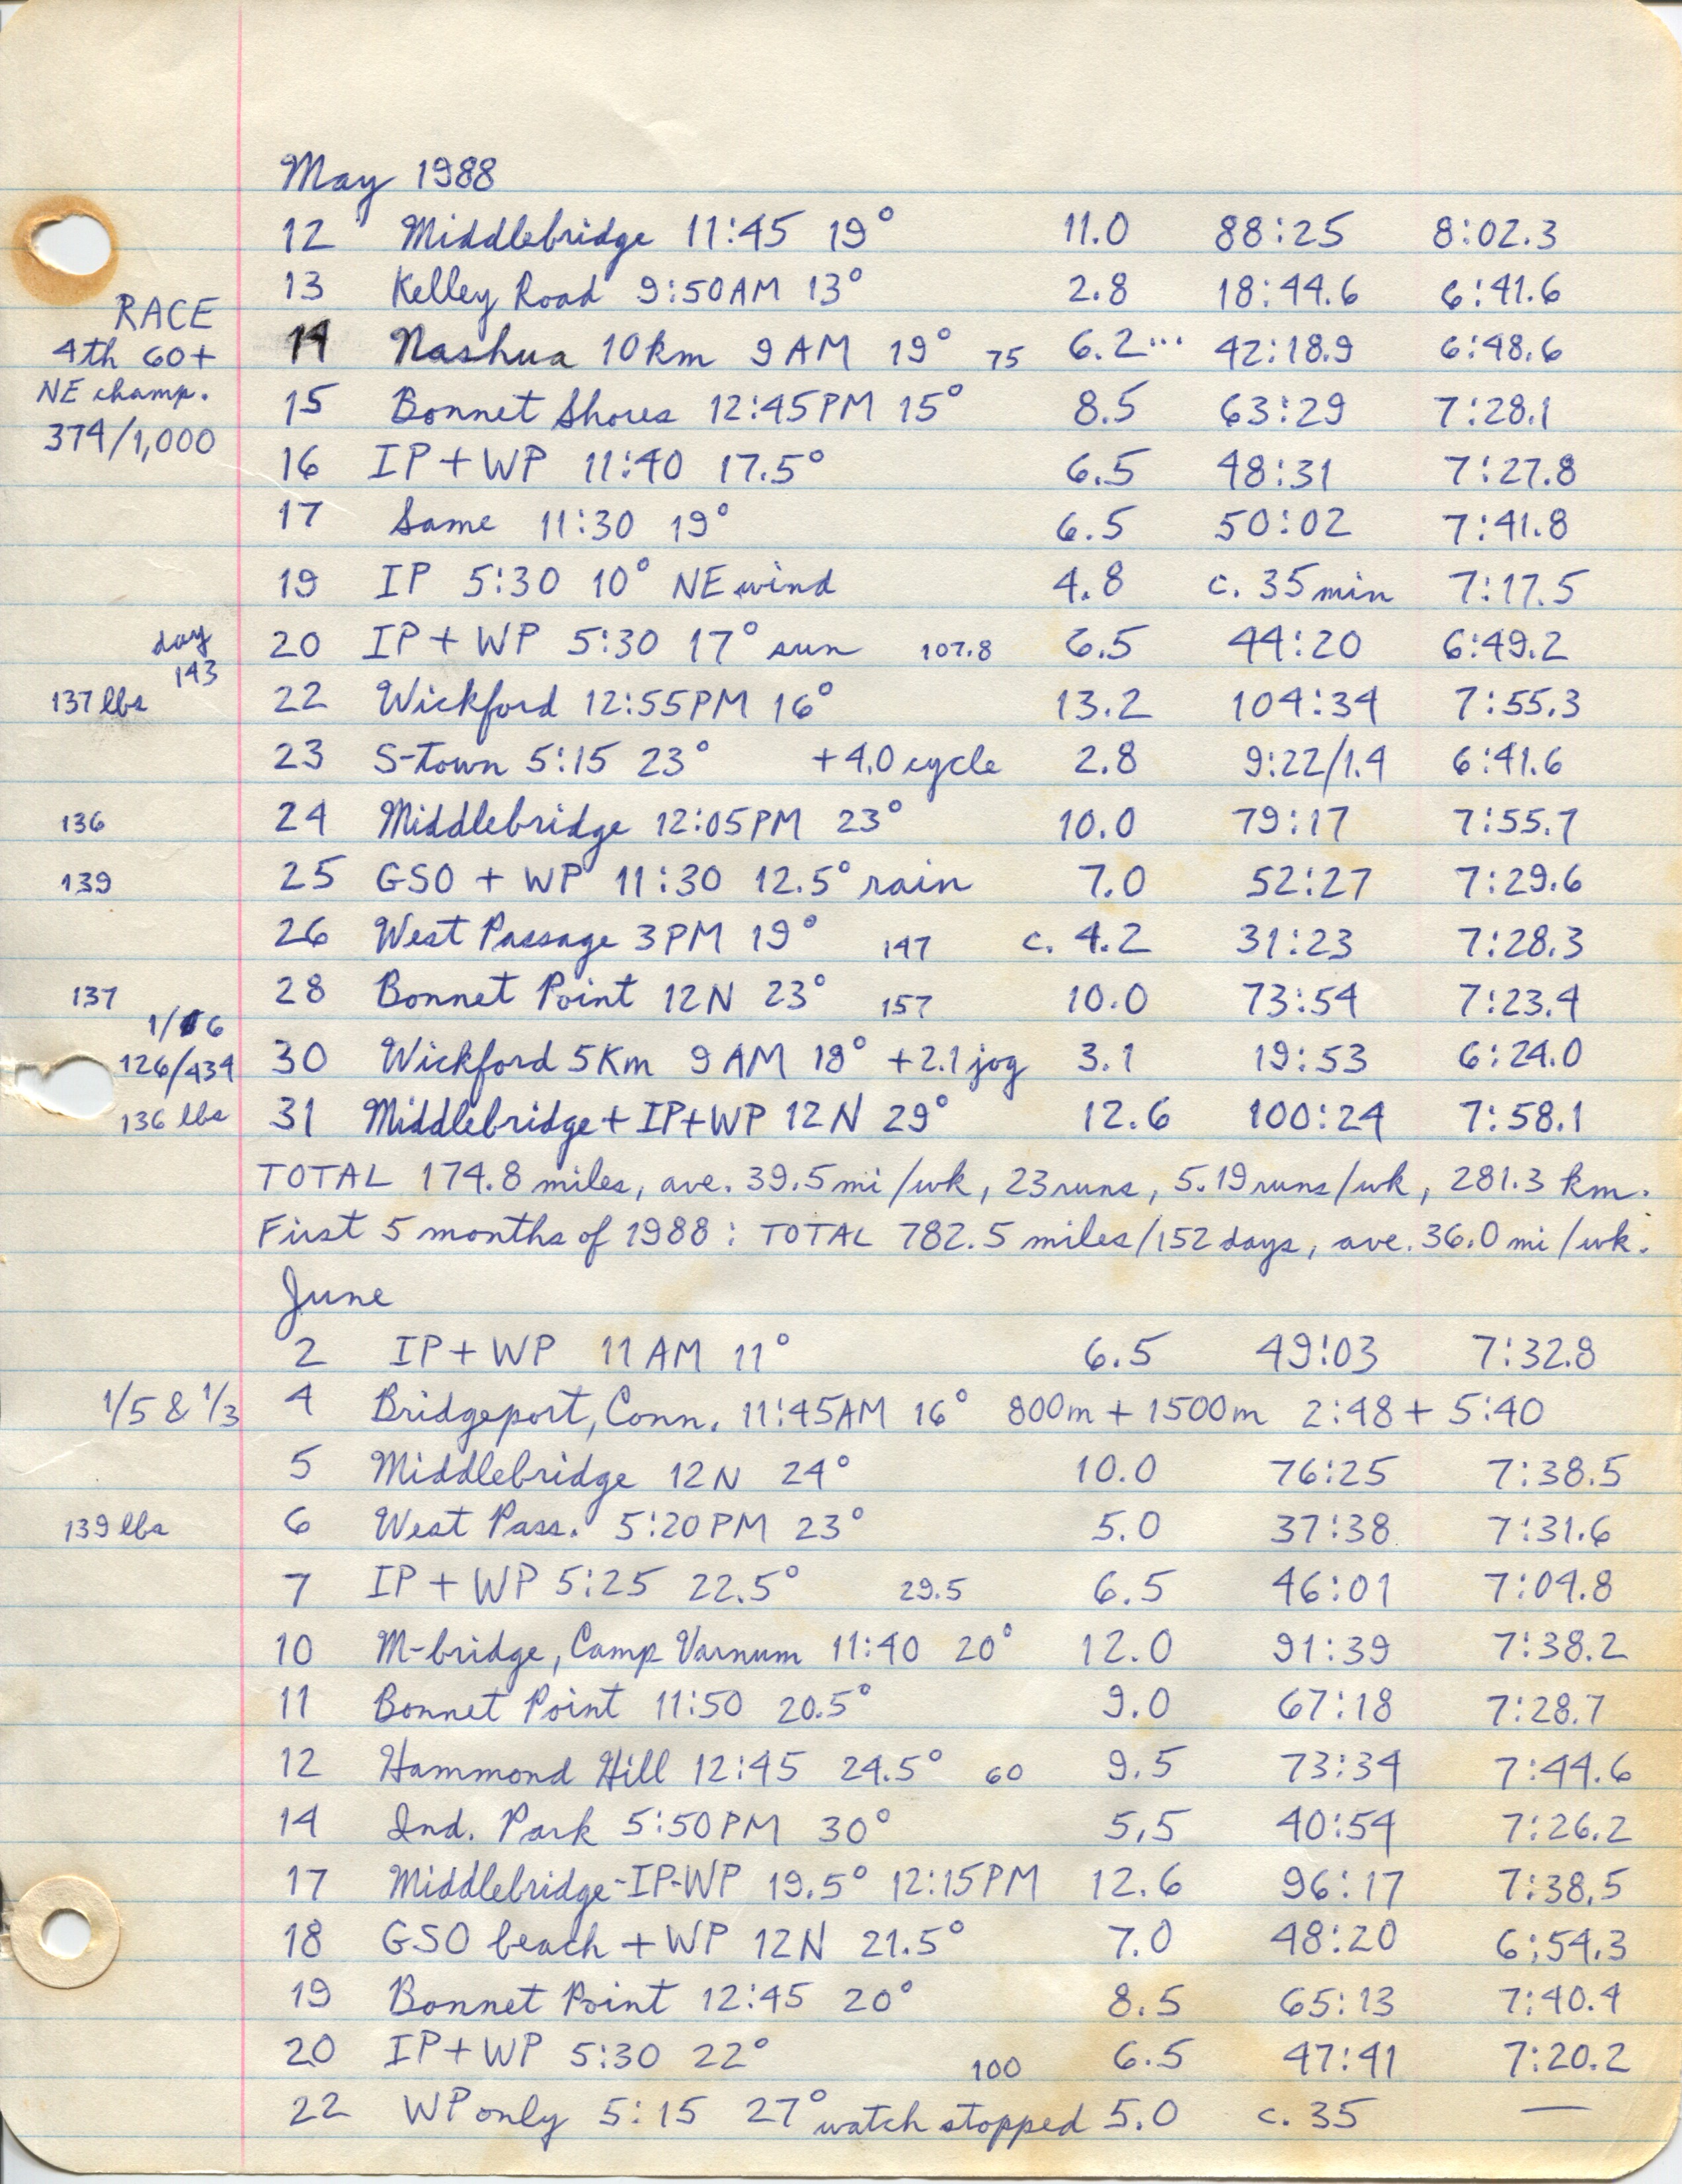 May 1988
12 Middlebridge 11:45 19° 11.0 88:25 8:02.3
13 Kelley Road 9:50AM 13° 2.8 18:44.6 6:41.6
RACE
4th 60+
NE champ.
374/1,000
14 Nashua 10km 9AM 19° 75 6.2... 42:18.9 6:48.6
15 Bonnet Shores 12:45PM 15° 8.5 63:29 7:28.1
16 IP+WP 11:40 17.5° 6.5 48:31 7:27.8
17 Same 11:30 19° 6.5 50:02 7:41.8
19 IP 5:30 10° NE wind 4.8 c. 35min 7:17.5
day
143
20 IP+WP 5:30 17° sun 107.8 6.5 44:20 6:49.2
137 lbs 22 Wickford 12:55PM 16° 13.2 104:34 7:55.3
23 S-town 5:15 23° +4.0 cycle 2.8 9:22/1.4 6:41.6
136 24 Middlebridge 12:05PM 23° 10.0 79:17 7:55.7
139 25 GSO + WP 11:30 12.5° rain 7.0 52:27 7:29.6
26 West Passage 3PM 19° 147 c. 4.2 31:23 7:28.3
137 28 Bonnet Point 12N 23° 157 10.0 73:54 7:23.4
1/6
126/434 30 Wickford 5Km 9AM 18° +2.1 jog 3.1 19:53 6:24.0
136 lbs 31 Middlebridge+IP+WP 12N 29° 12.6 100:24 7:58.1
TOTAL 174.8 miles, ave. 39.5 mi/wk, 23 runs, 5.19 runs/wk, 281.3 km.
First 5 months of 1988: TOTAL 782.5 miles/152 days, ave. 36.0 mi/wk.
June
2 IP+WP 11AM 11° 6.5 49:03 7:32.8
1/5 & 1/3 4 Bridgeport, Conn. 11:45AM 16° 800m + 1500m 2:48 + 5:40
5 Middlebridge 12N 24° 10.0 76:25 7:38.5
139 lbs 6 West Pass. 5:20PM 23° 5.0 37:38 7:31.6
7 IP+WP 5:25 22.5° 29.5 6.5 46:01 7:04.8
10 M-bridge, Camp Varnum 11:40 20° 12.0 91:39 7:38.2
11 Bonnet Point 11:50 20.5° 9.0 67:18 7:28.7
12 Hammond Hill 12:45 24.5° 60 9.5 73:34 7:44.6
14 Ind. Park 5:50PM 30° 5.5 40:54 7:26.2
17 Middlebridge-IP-WP 19.5° 12:15PM 12.6 96:17 7:38.5
18 GSO beach + WP 12N 21.5° 7.0 48:20 6:54.3
19 Bonnet Point 12:45 20° 8.5 65:13 7:40.4
20 IP+WP 5:30 22° 100 6.5 47:41 7:20.2
22 WP only 5:15 27° watch stopped 5.0 c. 35 —